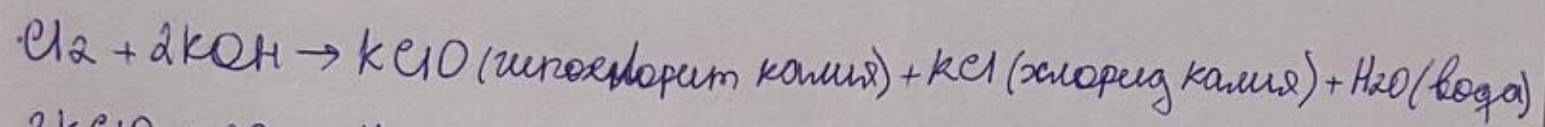 Cl2 + 2KOH → KClO (гипохлорит калия) + KCl (хлорид калия) + H2O (вода)